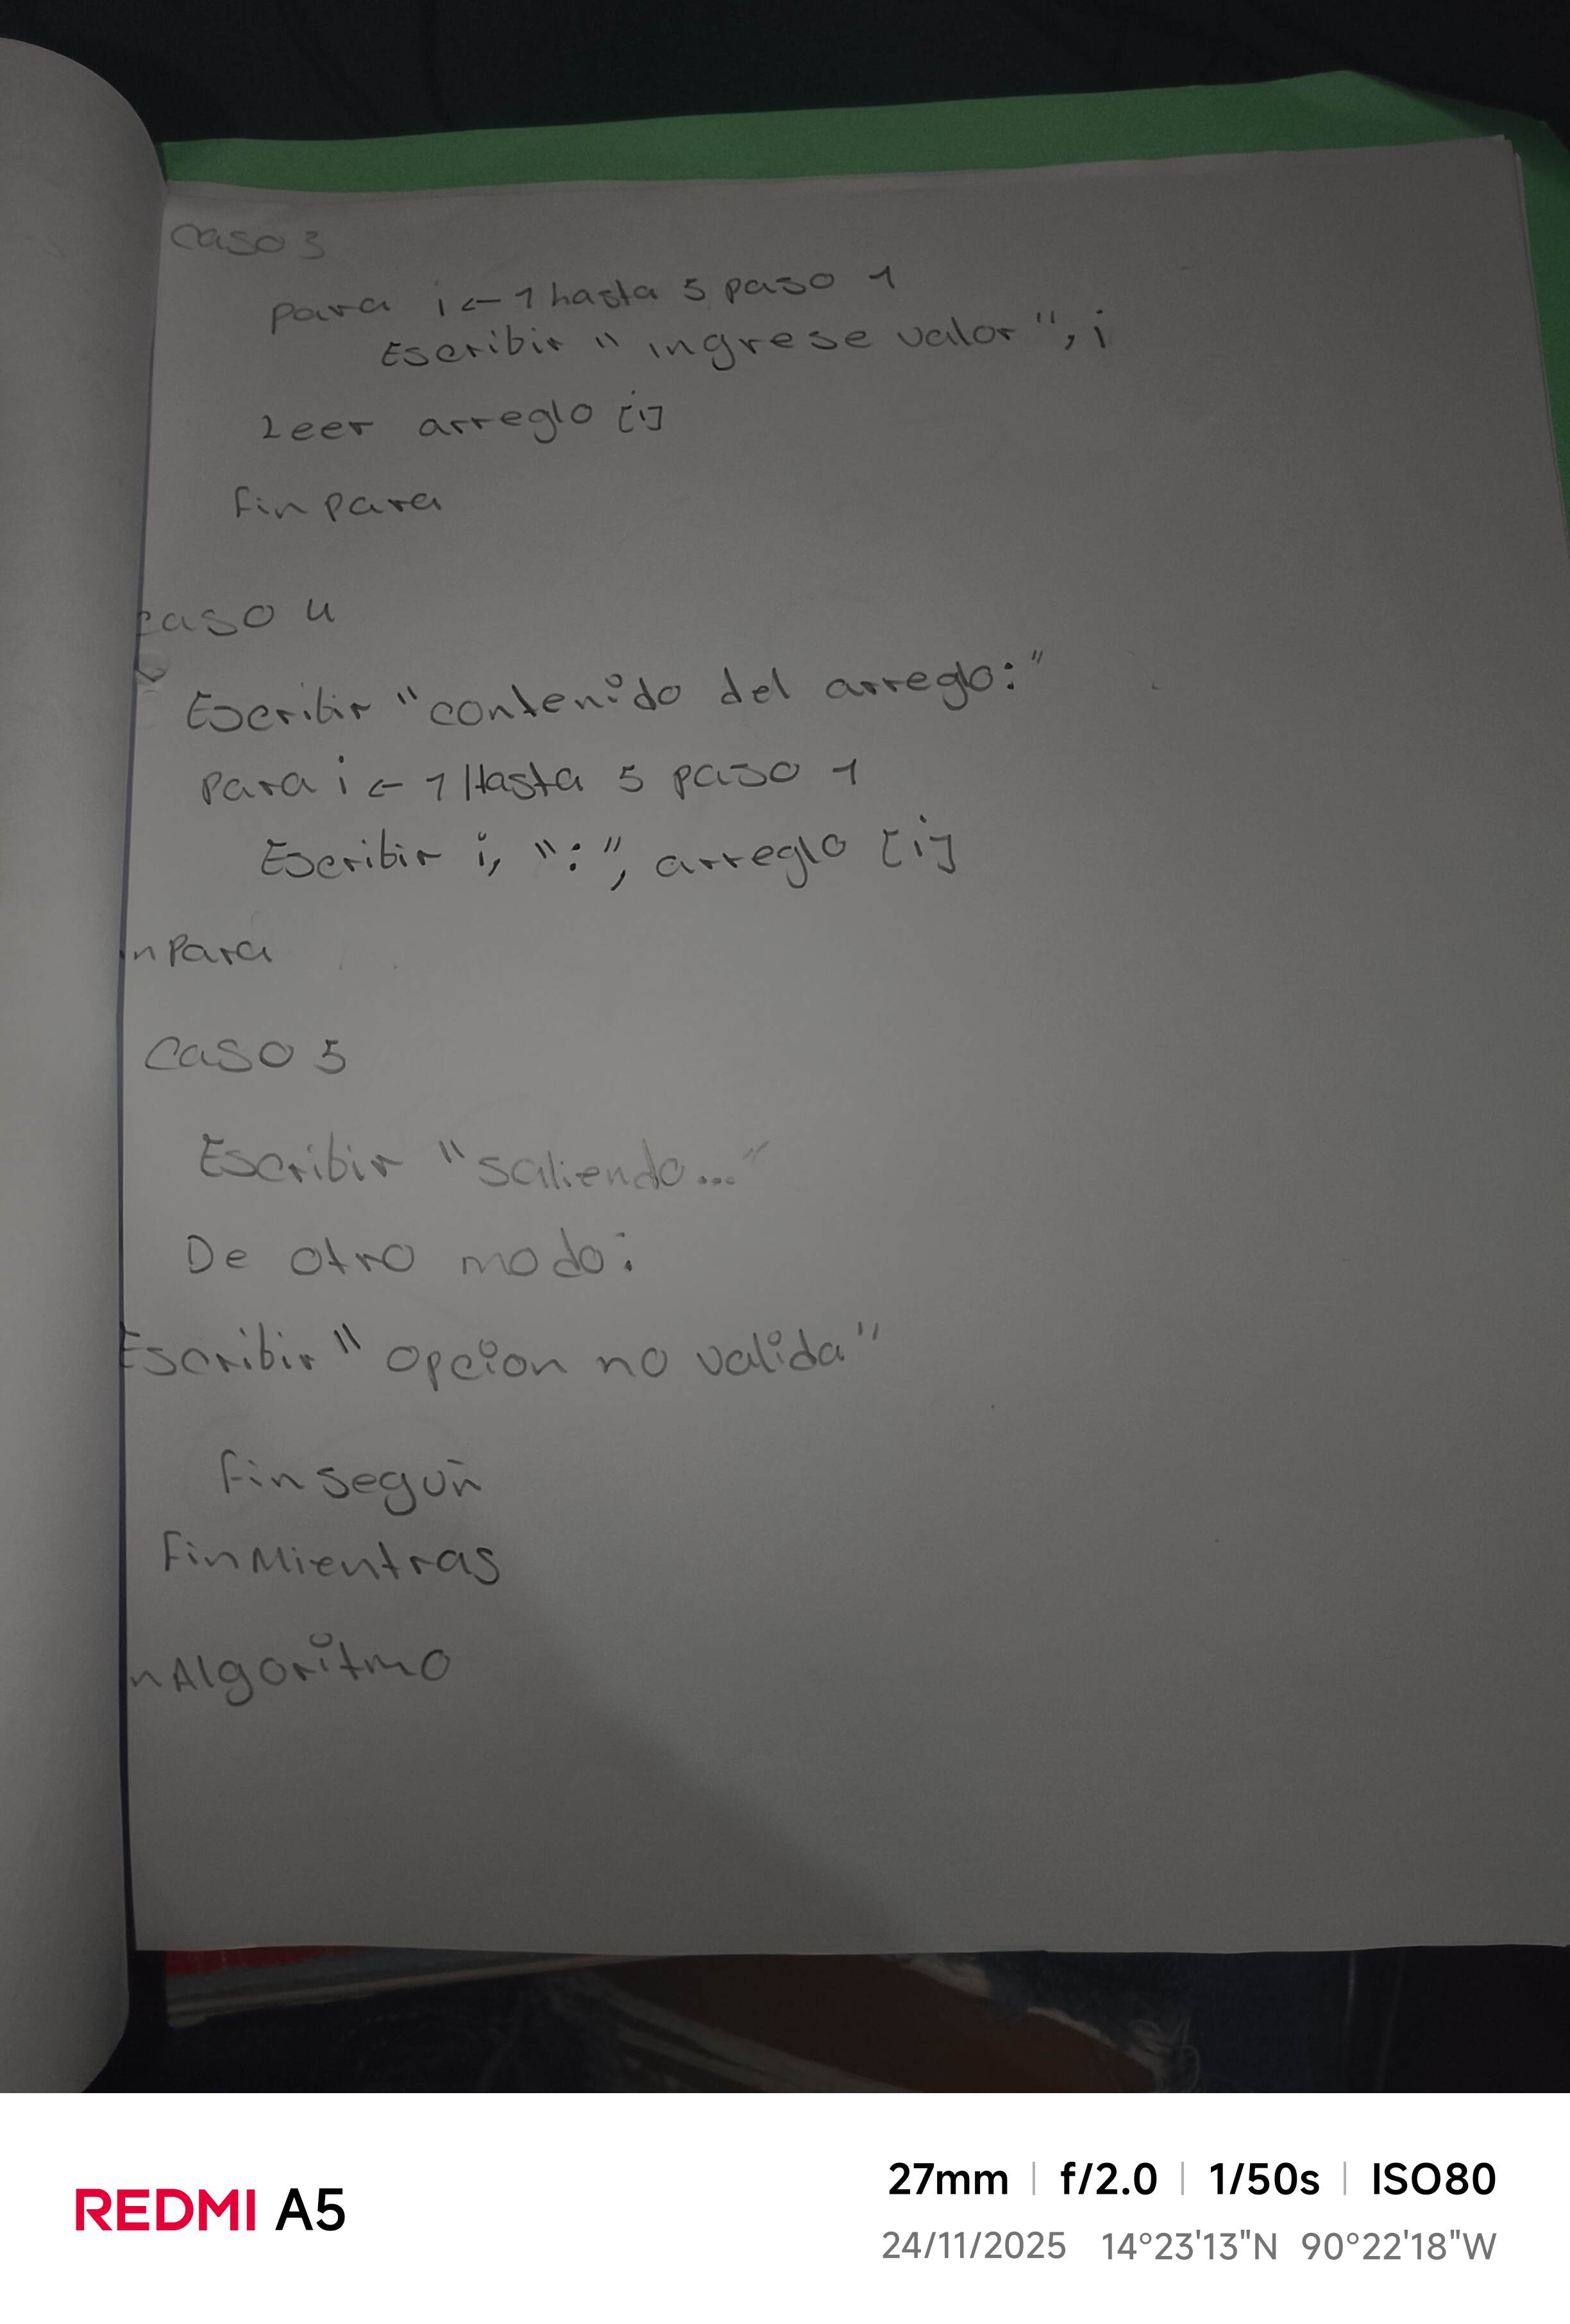 Caso 3
para i ← 1 hasta 5 paso 1
Escribir "ingrese valor", i
Leer arreglo [i]
fin para
caso 4
Escribir "contenido del arreglo:"
para i ← 1 Hasta 5 paso 1
Escribir i, ":", arreglo [i]
n Para
Caso 5
Escribir "saliendo..."
De otro modo:
Escribir "opcion no valida"
fin según
FinMientras
nAlgoritmo
REDMI A5
27mm | f/2.0 | 1/50s | ISO80
24/11/2025 14°23'13"N 90°22'18"W